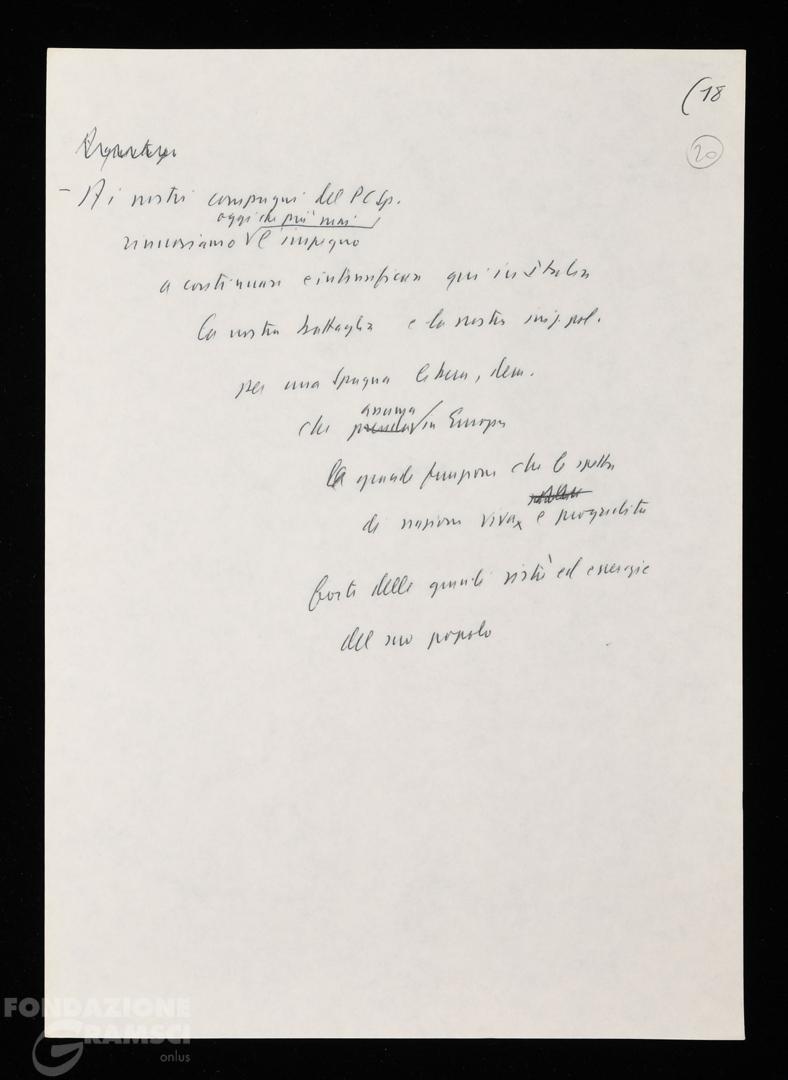 (18
20
- Ai nostri compagni del P C Sp.
oggi che più mai
rinnoviamo l'impegno
a continuare e intensificare qui in Italia
la nostra battaglia e la nostra iniz. pol.
per una Spagna libera, dem.
assuma
che prenda in Europa
la grande funzione che le spetta
di nazione viva e progredita
forte delle grandi virtù ed energie
del suo popolo
FONDAZIONE
GRAMSCI
onlus